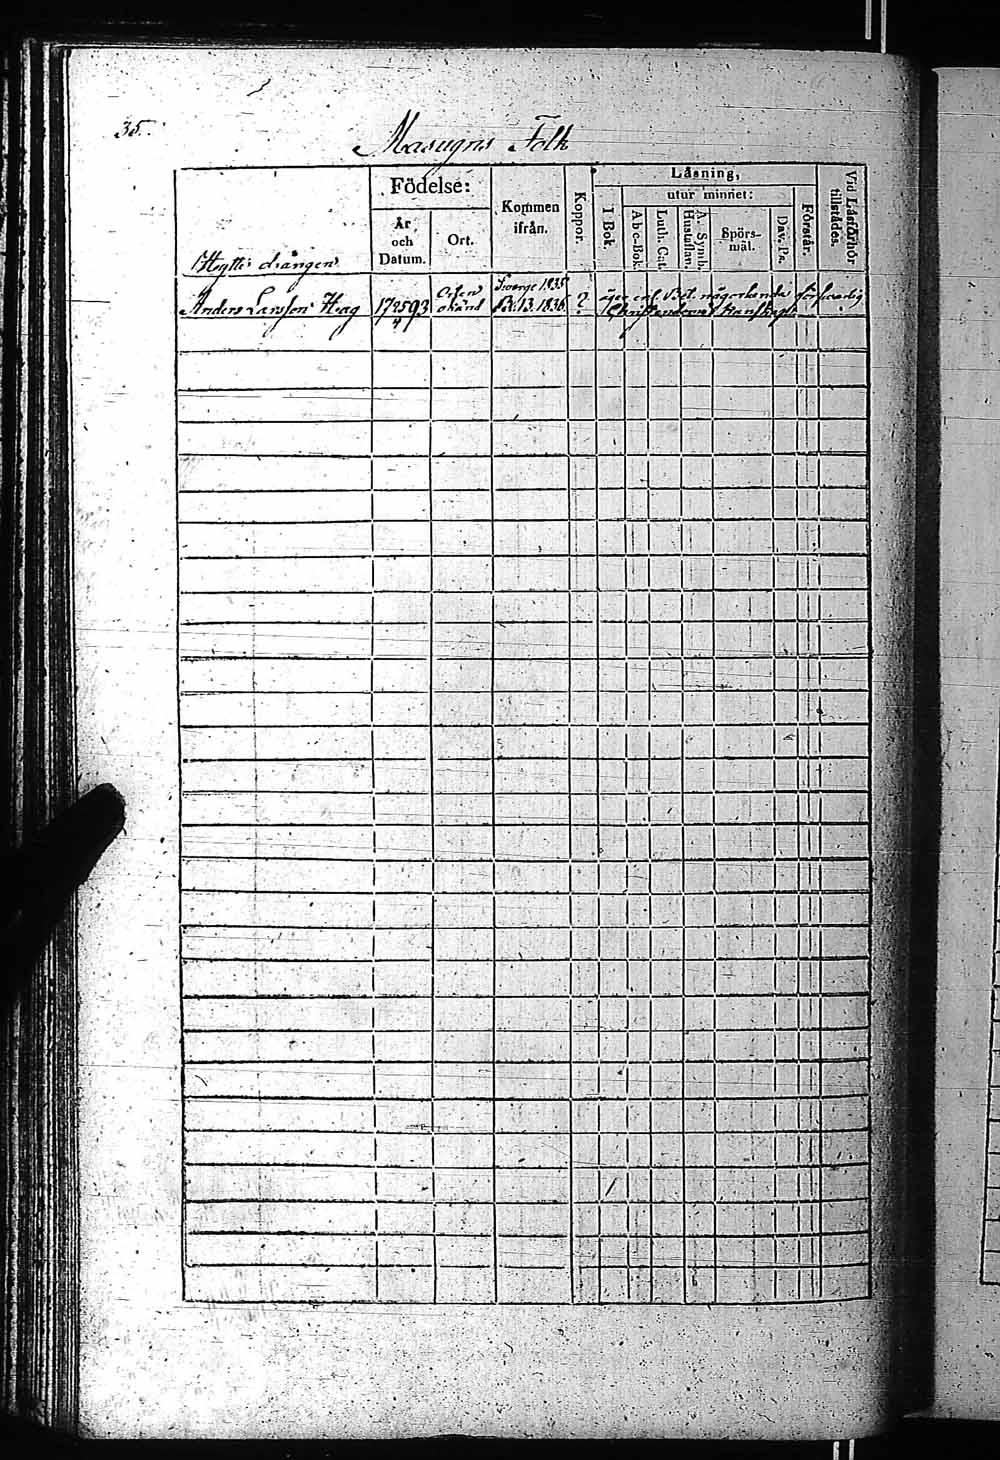 35.
Masugns Folk
Läsning,
Födelse:
utur minnet:
Kommen ifrån.
Koppor.
I Bok.
Ab c-Bok.
Luth. Cat.
A. Symb. Hustaflan.
Spörsmål.
Dav. Ps.
Förstår.
Vid Läsförhör tillstädes.
År och Datum.
Ort.
Hytte drängen
Sverge 1835
Anders Larsson Hag 17 25/4 93 Orten okänd B. 13. 1836 ? äger enl. Bet. någorlunda försvarlig
Christendoms kunskap